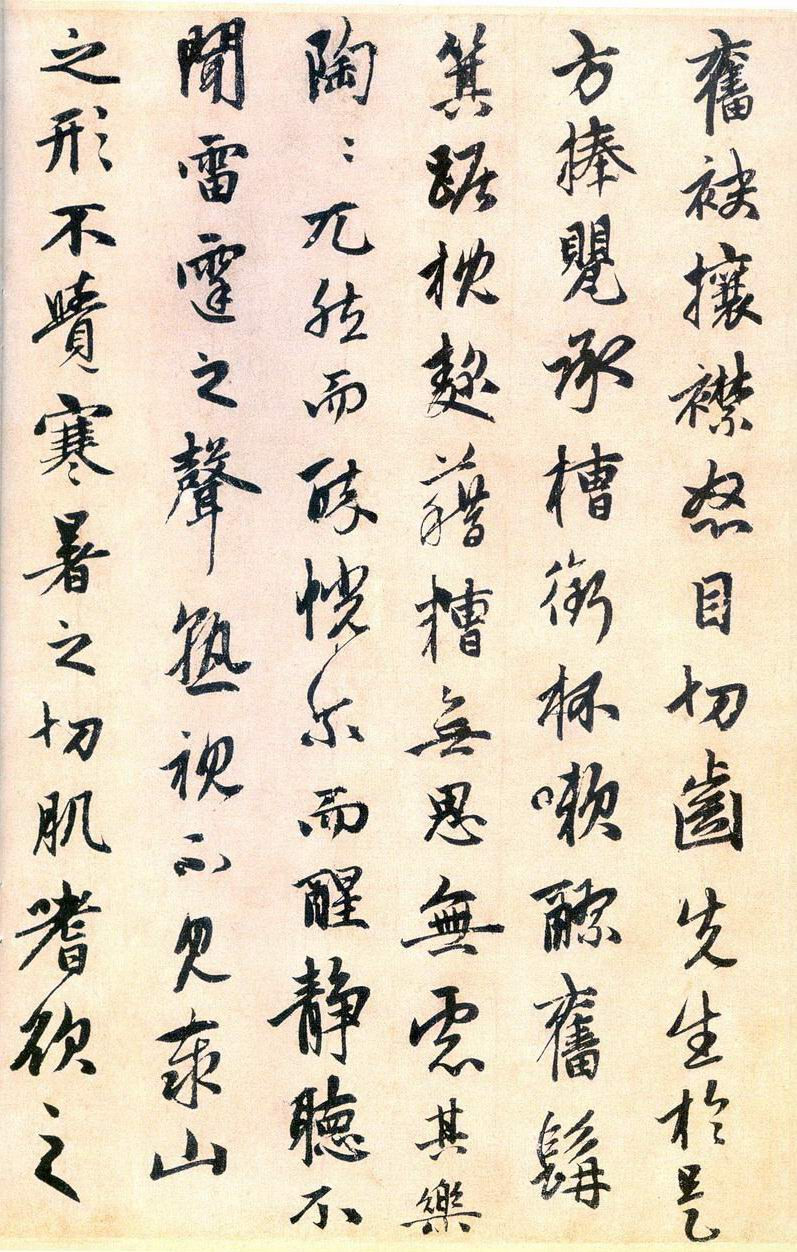 奮袂攘襟怒目切齒先生於是
方捧甖承槽銜杯漱醪奮髯
箕踞枕麴藉糟無思無慮其樂
陶〻兀然而醉恍尔而醒静聽不
聞雷霆之聲熟視不見泰山
之形不覺寒暑之切肌嗜欲之